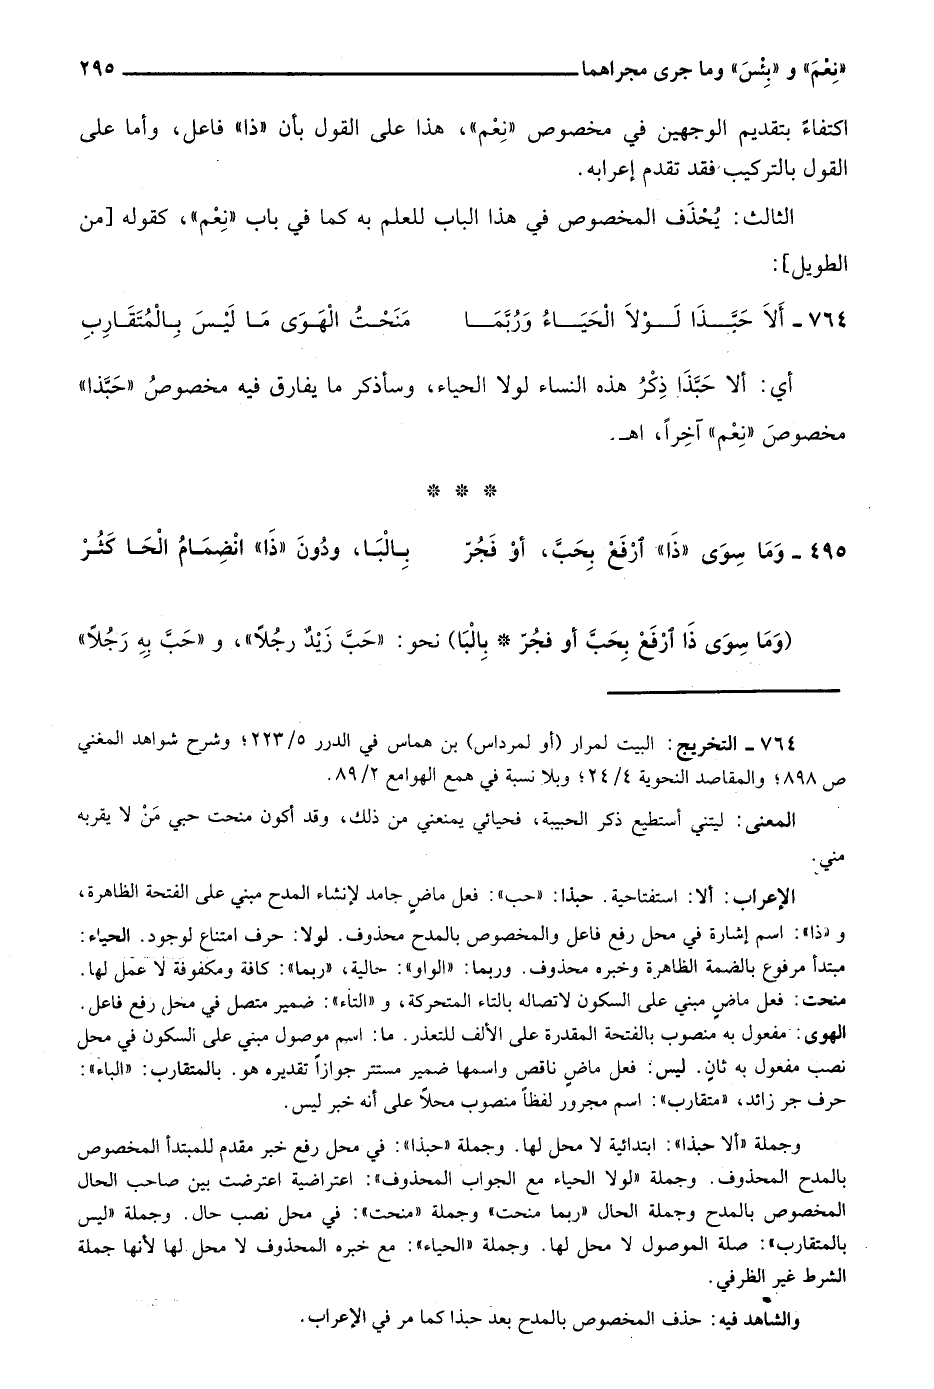 «نِعْمَ» و «بِئْسَ» وما جرى مجراهما ٢٩٥
اكتفاءً بتقديم الوجهين في مخصوص «نِعْم»، هذا على القول بأن «ذا» فاعل، وأما على
القول بالتركيب فقد تقدم إعرابه.
الثالث: يُحْذَف المخصوص في هذا الباب للعلم به كما في باب «نِعْم»، كقوله [من
الطويل]:
٧٦٤ ـ أَلاَ حَبَّـذَا لَـوْلاَ الْحَيَـاءُ وَرُبَّمَـا مَنَحْـتُ الْهَـوَى مَـا لَيْـسَ بِـالْمُتَقَـارِبِ
أي: ألا حَبَّذَا ذِكْرُ هذه النساء لولا الحياء، وسأذكر ما يفارق فيه مخصوصُ «حَبَّذا»
مخصوصَ «نِعْم» آخِراً، اهـ.
* * *
٤٩٥ ـ وَمَا سِوَى «ذَا» ٱرْفَعْ بِحَبَّ، أوْ فَجُرّ بِـالْبَـا، ودُونَ «ذَا» انْضِمَـامُ الْحَـا كَثُـرْ
(وَمَا سِوَى ذَا ٱرْفَعْ بِحَبَّ أو فجُرّ * بِالْبَا) نحو: «حَبَّ زَيْدٌ رجُلاً»، و «حَبَّ بِهِ رَجُلاً»
٧٦٤ ـ التخريج: البيت لمرار (أو لمرداس) بن هماس في الدرر ٢٢٣/٥؛ وشرح شواهد المغني
ص ٨٩٨؛ والمقاصد النحوية ٢٤/٤؛ وبلا نسبة في همع الهوامع ٨٩/٢.
المعنى: ليتني أستطيع ذكر الحبيبة، فحيائي يمنعني من ذلك، وقد أكون منحت حبي مَنْ لا يقربه
مني.
الإعراب: ألا: استفتاحية. حبذا: «حب»: فعل ماضٍ جامد لإنشاء المدح مبني على الفتحة الظاهرة،
و «ذا»: اسم إشارة في محل رفع فاعل والمخصوص بالمدح محذوف. لولا: حرف امتناع لوجود. الحياء:
مبتدأ مرفوع بالضمة الظاهرة وخبره محذوف. وربما: «الواو»: حالية، «ربما»: كافة ومكفوفة لا عمل لها.
منحت: فعل ماضٍ مبني على السكون لاتصاله بالتاء المتحركة، و «التاء»: ضمير متصل في محل رفع فاعل.
الهوى: مفعول به منصوب بالفتحة المقدرة على الألف للتعذر. ما: اسم موصول مبني على السكون في محل
نصب مفعول به ثانٍ. ليس: فعل ماضٍ ناقص واسمها ضمير مستتر جوازاً تقديره هو. بالمتقارب: «الباء»:
حرف جر زائد، «متقارب»: اسم مجرور لفظاً منصوب محلاً على أنه خبر ليس.
وجملة «ألا حبذا»: ابتدائية لا محل لها. وجملة «حبذا»: في محل رفع خبر مقدم للمبتدأ المخصوص
بالمدح المحذوف. وجملة «لولا الحياء مع الجواب المحذوف»: اعتراضية اعترضت بين صاحب الحال
المخصوص بالمدح وجملة الحال «ربما منحت» وجملة «منحت»: في محل نصب حال. وجملة «ليس
بالمتقارب»: صلة الموصول لا محل لها. وجملة «الحياء»: مع خبره المحذوف لا محل لها لأنها جملة
الشرط غير الظرفي.
والشاهد فيه: حذف المخصوص بالمدح بعد حبذا كما مر في الإعراب.